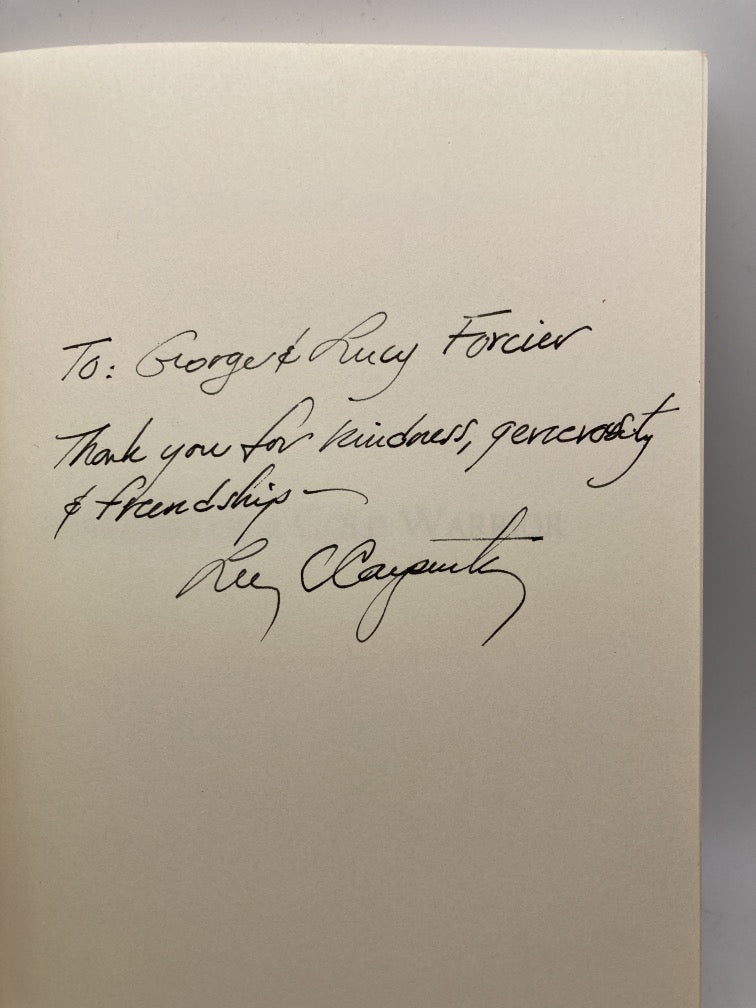 To: George & Lucy Forcier
Thank you for kindness, generosity
& friendship —
WARRIOR